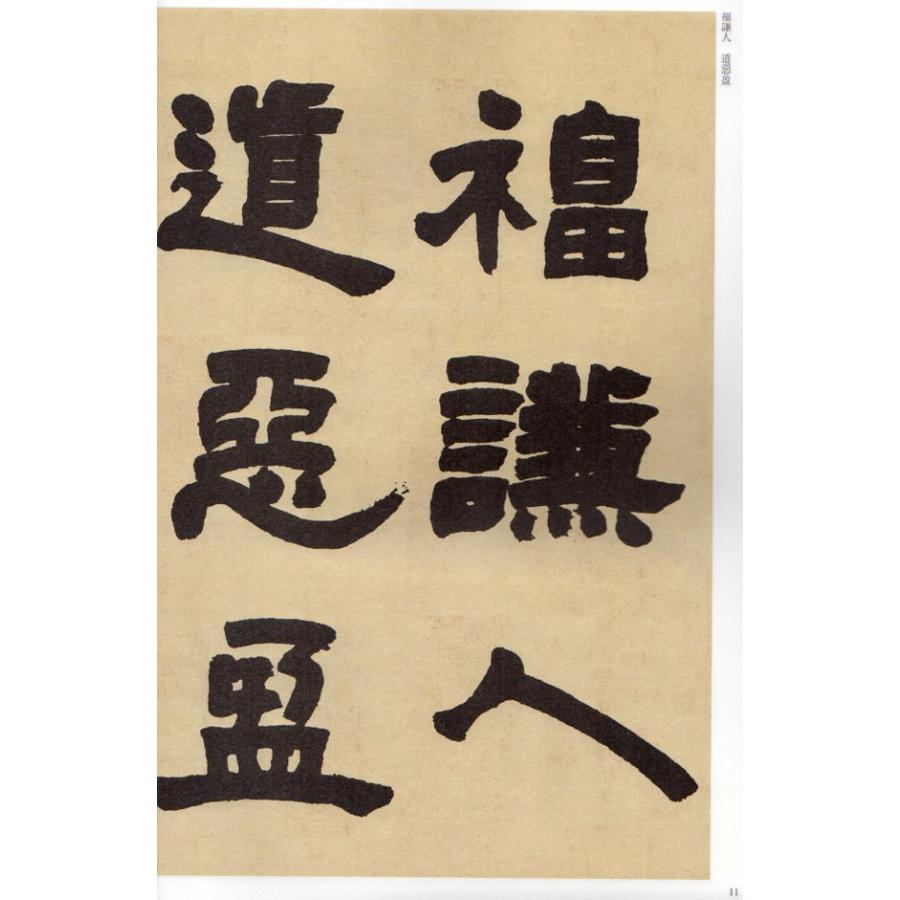 福謙人
道惡盈
福謙人 道惡盈
11